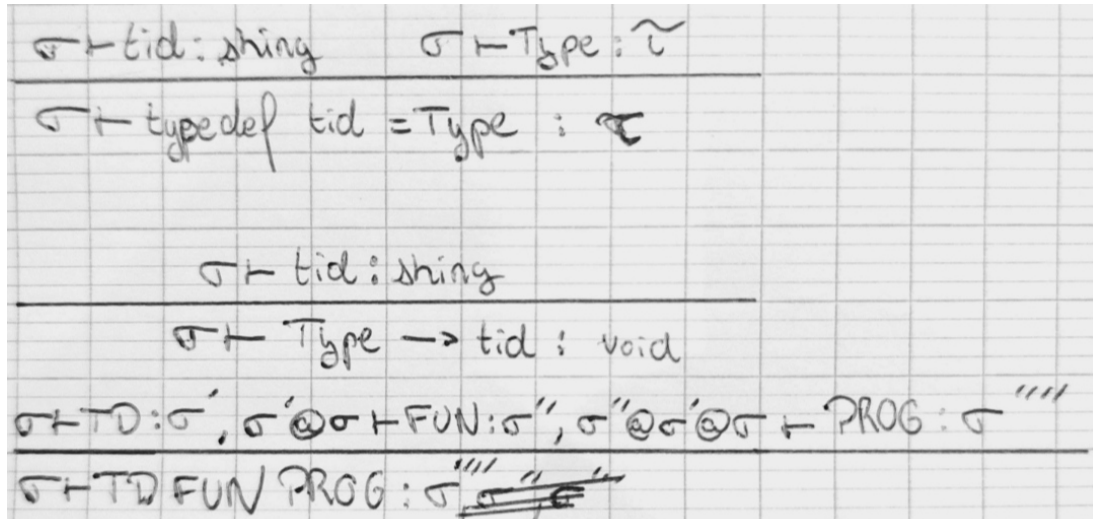 σ ⊢ tid : string σ ⊢ Type : τ
σ ⊢ typedef tid = Type : τ
σ ⊢ tid : string
σ ⊢ Type → tid : void
σ ⊢ TD : σ', σ'@σ ⊢ FUN : σ'', σ''@σ'@σ ⊢ PROG : σ''''
σ ⊢ TD FUN PROG : σ''''